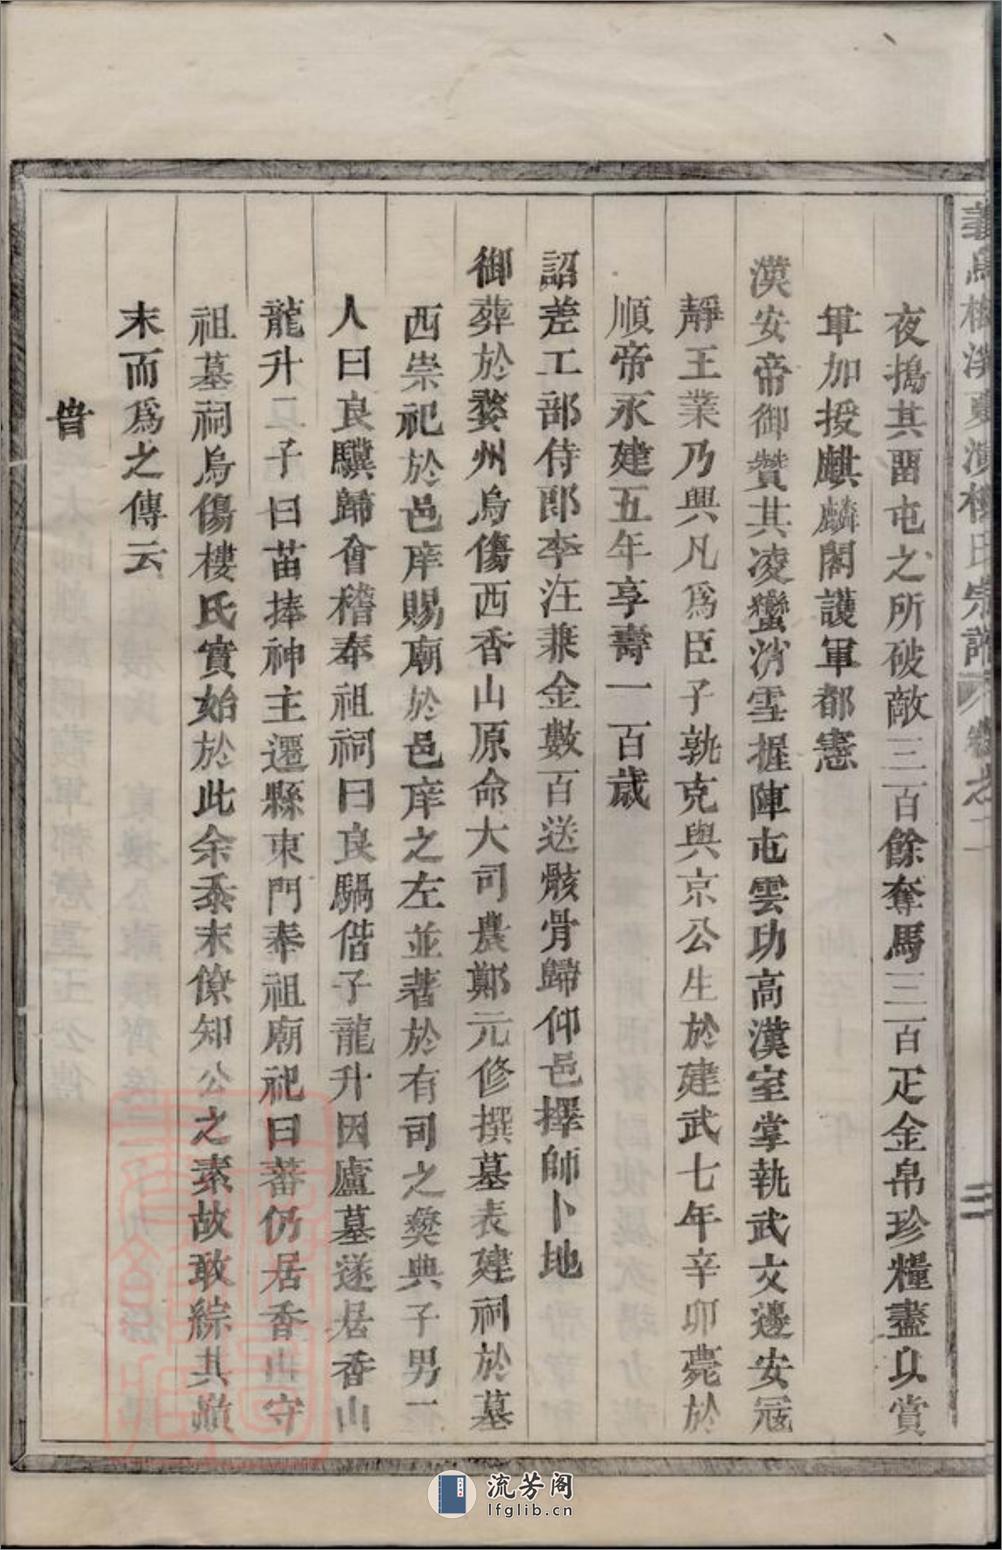 夜搗其酉屯之所破敵三百餘奪馬三百疋金帛珍糧盡以賞
軍加授麒麟閣護軍都憲
漢安帝御贊其凌蠻消雪握陣屯雲功高漢室掌執武文邊安冦
靜王業乃興凡爲臣子孰克與京公生於建武七年辛卯薨於
順帝永建五年享壽一百歲
詔差工部侍郎李汪兼金數百送骸骨歸仰邑擇師卜地
御葬於婺州烏傷西香山原命大司農鄭元修撰墓表建祠於墓
西崇祀於邑庠賜廟於邑庠之左並著於有司之彝典子男一
人曰良驥歸會稽奉祖祠曰良騧偕子龍升因廬墓遂居香山
龍升二子曰苗捧神主還縣東門奉祖廟祀曰蕃仍居香山守
祖墓祠烏傷樓氏實始於此余忝末僚知公之素故敢綜其巔
末而爲之傳云
旹
義烏樓氏宗譜 卷之二
二
流芳阁
lfglib.cn